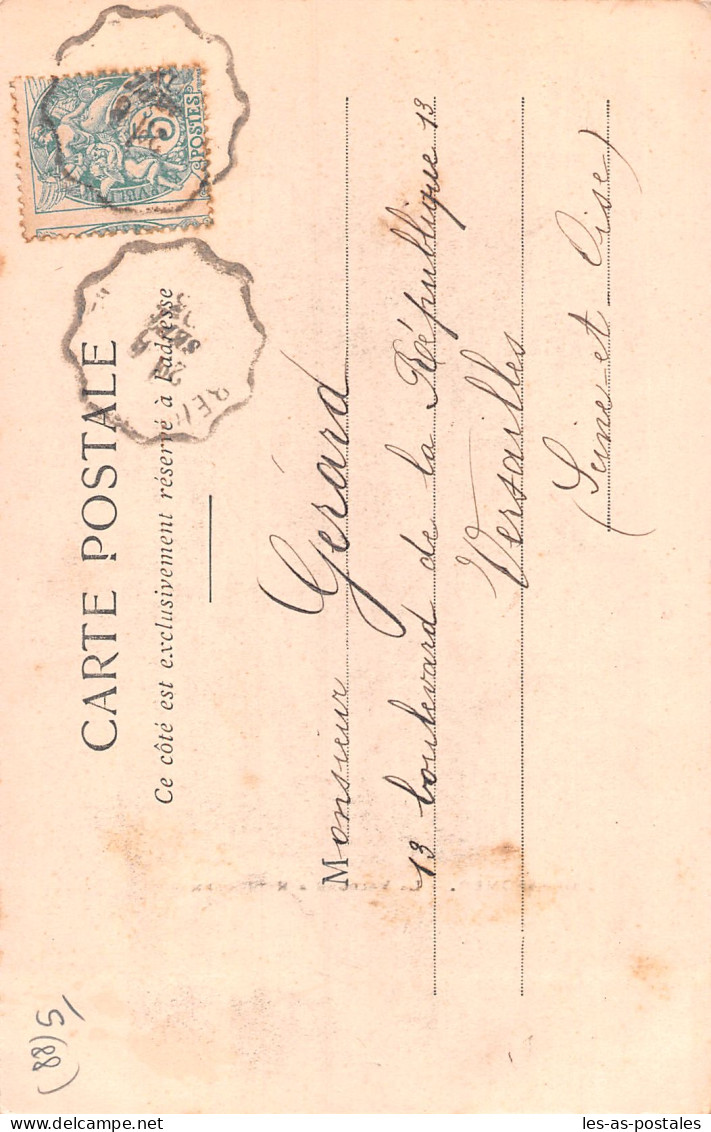 CARTE POSTALE
Ce côté est exclusivement réservé à l'adresse
POSTES
5
Monsieur Gérard
13 boulevard de la République 13
Versailles
(Seine-et-Oise)
5(88)
les-as-postales